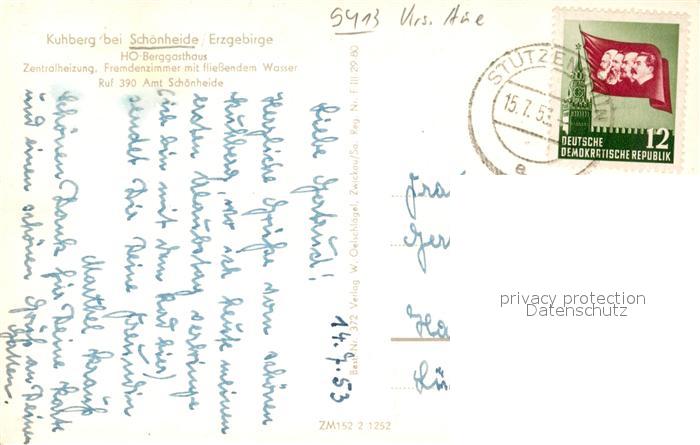 5413 Krs. Aue
Kuhberg bei Schönheide / Erzgebirge
HO-Berggasthaus
Zentralheizung, Fremdenzimmer mit fließendem Wasser
Ruf 390 Amt Schönheide
STÜTZEN
15.7.53
a
12
DEUTSCHE
DEMOKRATISCHE REPUBLIK
Liebe Gertrud!
Herzliche Grüße vom schönen
Kuhberg, wo ich heute meinen
ersten Urlaubstag verbringe
(ich bin mit dem Rad hier)
sendet Dir Deine Freundin
Marthel
Schönen Dank für Deine Karte
und einen schönen Gruß an Deine
Eltern.
14.7.53
Best.-Nr. 372 Verlag W. Oelschlägel, Zwickau/Sa. Reg. Nr. F III 29 80
Ger
Ha
privacy protection
Datenschutz
ZM152 2 1252